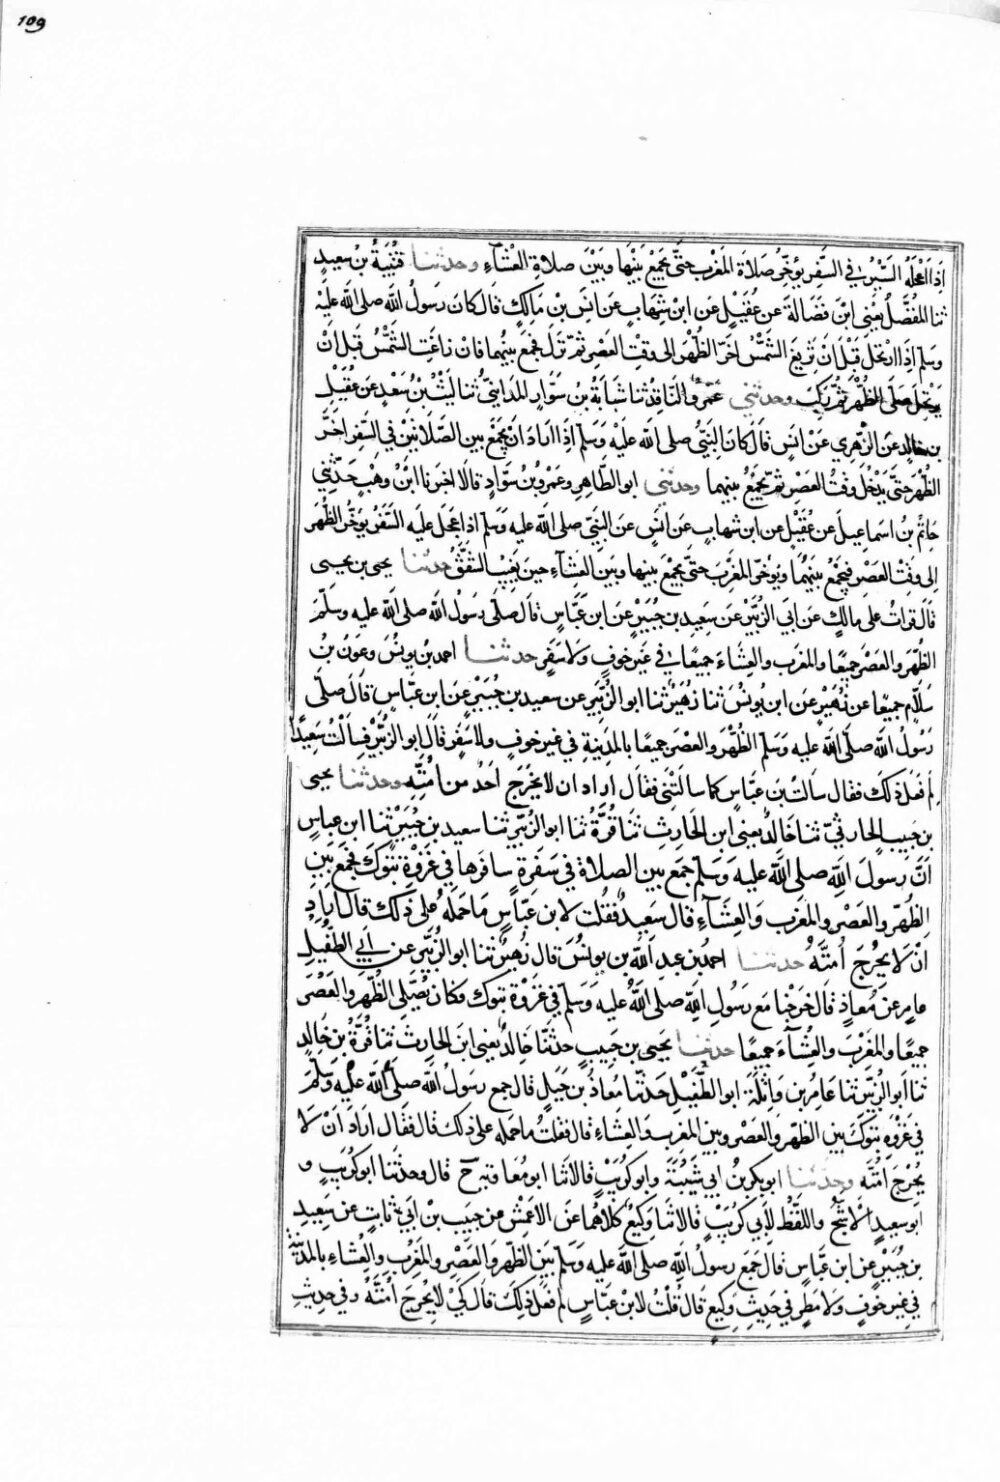 109
اِذَا اَعْجَلَهُ السَّيْرُ فِي السَّفَرِ يُؤَخِّرُ صَلَاةَ المَغْرِبِ حَتّٰى يَجْمَعَ بَيْنَهَا وَبَيْنَ صلاةِ العِشَآءِ وحدثنا قُتَيْبَةُ بنُ سعيدٍ
ثنا المُفَضَّلُ يَعْنِي ابْنَ فَضَالَةَ عن عُقَيْلٍ عَنِ ابْنِ شِهَابٍ عَن اَنَسِ بْنِ مَالِكٍ قَالَ كانَ رَسولُ اللهِ صلى الله عليْهِ
وَسلم اِذَا ارْتَحَلَ قَبْلَ اَنْ تَزِيغَ الشَّمْسُ اَخَّرَ الظُّهْرَ اِلى وَقْتِ العَصْرِ ثُمَّ نَزَلَ فَجَمَعَ بينَهُما فَاِن زَاغَتِ الشَّمْسُ قَبْلَ اَنْ
يَرْتَحِلَ صَلَّى الظُّهْرَ ثُمَّ رَكِبَ وحدثني عَمْرٌو النَّاقِدُ ثنا شَبَابَةُ بنُ سَوَّارٍ المَدَاينيُّ ثنا لَيْثُ بْنُ سَعْدٍ عَن عُقَيْلِ
بن خالدٍ عَنِ الزُّهْرِي عَنْ اَنَسٍ قَالَ كَانَ النَّبِيُّ صلى الله عليْهِ وَسَلم اِذَا اَرَادَ اَنْ يَجْمَعَ بين الصَّلَاتَيْنِ فِي السَّفَرِ اَخَّرَ
الظُّهْرَ حَتّٰى يَدْخُلَ وَقْتُ العَصْرِ ثُمَّ يَجْمَعُ بينهما وحدثني ابو الطَّاهِرِ وعَمْرُو بْنُ سَوَّادٍ قَالَا اخبَرنا ابْنُ وَهْبٍ حَدَّثَنِي
حَاتِمُ بنُ اسمَاعِيلَ عَن عُقَيْلٍ عن ابن شهابٍ عَن اَنَسٍ عَن النبيّ صلى الله عليه وَسَلم اِذا عَجَلَ عليه السَّفَرُ يؤخّرُ الظّهر
اِلى وقتِ العَصْرِ فَيَجْمَعُ بينَهُمَا وَيُؤخّرُ المَغْرِبَ حَتّٰى يَجْمَعَ بينها وبين العِشَآءِ حِينَ يَغِيبُ الشَّفَقُ حدثنا يحيى بن يحيى
قَالَ قَراتُ على مَالِكٍ عَن اَبي الزُّبَيْرِ عَن سَعِيدِ بنِ جُبَيْرٍ عَنِ ابنِ عَبَّاسٍ قَالَ صلّى رَسُولُ الله صَلى الله عليه وسلّم
الظّهرَ والعَصْرَ جميعًا والمَغربَ والعِشَاءَ جميعًا في غَيْرِ خوفٍ ولا سَفَرٍ حدثنا احمد بن يونُسَ وعَوْنُ بنُ
سَلَّامٍ جميعًا عن زُهَيْرٍ عَنِ ابن يُونُسَ ثنا زهَيْرٌ ثنا ابو الزُّبَيْرِ عن سعيدِ بنِ جُبَيْرٍ عَن ابن عبّاسٍ قَالَ صَلّى
رَسُولُ الله صلّى الله عليه وَسَلم الظُّهْرَ والعصْرَ جميعًا بالمَدِينةِ فِي غيرِ خوفٍ ولا سَفَرٍ قَالَ ابو الزّبيْرِ فسالتُ سَعِيدًا
لِمَ فَعَلَ ذٰلِكَ فقال سَالتُ بنَ عَبّاسٍ كما سَالتَنِي فقَال اراد ان لا يُحْرِجَ احَدً من اُمَّتِهِ وحدثنا يحيى
بن حَبيبٍ الحارِثيّ ثنا خَالِدٌ يعني ابن الحَارِثِ ثَنا قُرَّةُ ثنا ابو الزّبيْرِ ثنا سعيد بن جُبَيْرٍ ثنا ابن عباسٍ
اَنَّ رسولَ اللهِ صلى الله عليه وَسَلّم جمَع بين الصلاة في سَفَرةٍ سافرَها في غَزْوَةِ تَبُوكَ فَجَمَعَ بينَ
الظُهْرِ والعَصْرِ والمغربِ والعِشَآءِ قال سَعيدٌ فقُلتُ لابن عبّاسٍ مَا حَمَلَهُ عَلى ذٰلكَ قال اَرَادَ
اَنْ لَا يُحْرِجَ اُمتَّهُ حدثنا احمدُ بن عبدِ الله بنِ يونُسَ قال زهيرٌ ثنا ابو الزّبيْرِ عن اَبِي الطُّفَيْلِ
عامِرٍ عن مُعاذٍ قَالَ خَرَجْنا مَعَ رَسولِ الله صلى الله عليه وَسَلم في غَزوَةِ تبوكَ فكان يُصَلِّي الظّهرَ والعَصْرَ
جميعًا والمَغْرِبَ والعِشَآءَ جَميعًا حدثنا يحيى بن حَبِيبٍ حَدّثنَا خَالِدٌ يعني ابنَ الحارِث ثنا قُرَّةُ بنُ خَالِدٍ
ثنا ابو الزبيْرِ ثنا عَامِرُ بن وَاثِلَةَ ابو الطُّفَيْلِ حَدثنَا مُعَاذُ بن جَبَلٍ قال جمع رسولُ الله صلى الله عليه وَسَلّم
في غَزْوَةِ تَبُوكَ بين الظّهرِ والعصْرِ وبين المغرِبِ والعِشَاءِ قال فقلتُ ما حَمَله على ذٰلك قال فقال ارادَ اَنْ لَا
يُحْرِجَ امّتَه وحدثنا ابو بكرِ بنُ ابي شَيْبَةَ وابو كُرَيْبٍ قالا ثنا ابو مُعاوية ح قال وحدثنا ابو كُرَيْبٍ و
ابو سعيدٍ الاشَجُّ واللفظ لِاَبي كُرَيْبٍ قالا ثنا وكِيعٌ كلاهُما عَنِ الاَعمَشِ عن حَبِيبِ بْنِ ابي ثَابِتٍ عن سَعِيدِ
بن جُبَيْرٍ عن ابن عَبّاسٍ قال جَمَع رسولُ الله صلى الله عليه وَسَلّم بَين الظّهرِ والعَصْرِ والمَغْرِبِ والعِشاءِ بالمَدينَةِ
في غيرِ خوفٍ وَلَا مَطَرٍ في حَدِيثِ وَكِيعٍ قَالَ قُلْتُ لابن عَبّاسٍ لِمَ فعَلَ ذٰلِكَ قال كَيْ لا يُحْرِجَ اُمَّتَهُ وفي حديثِ